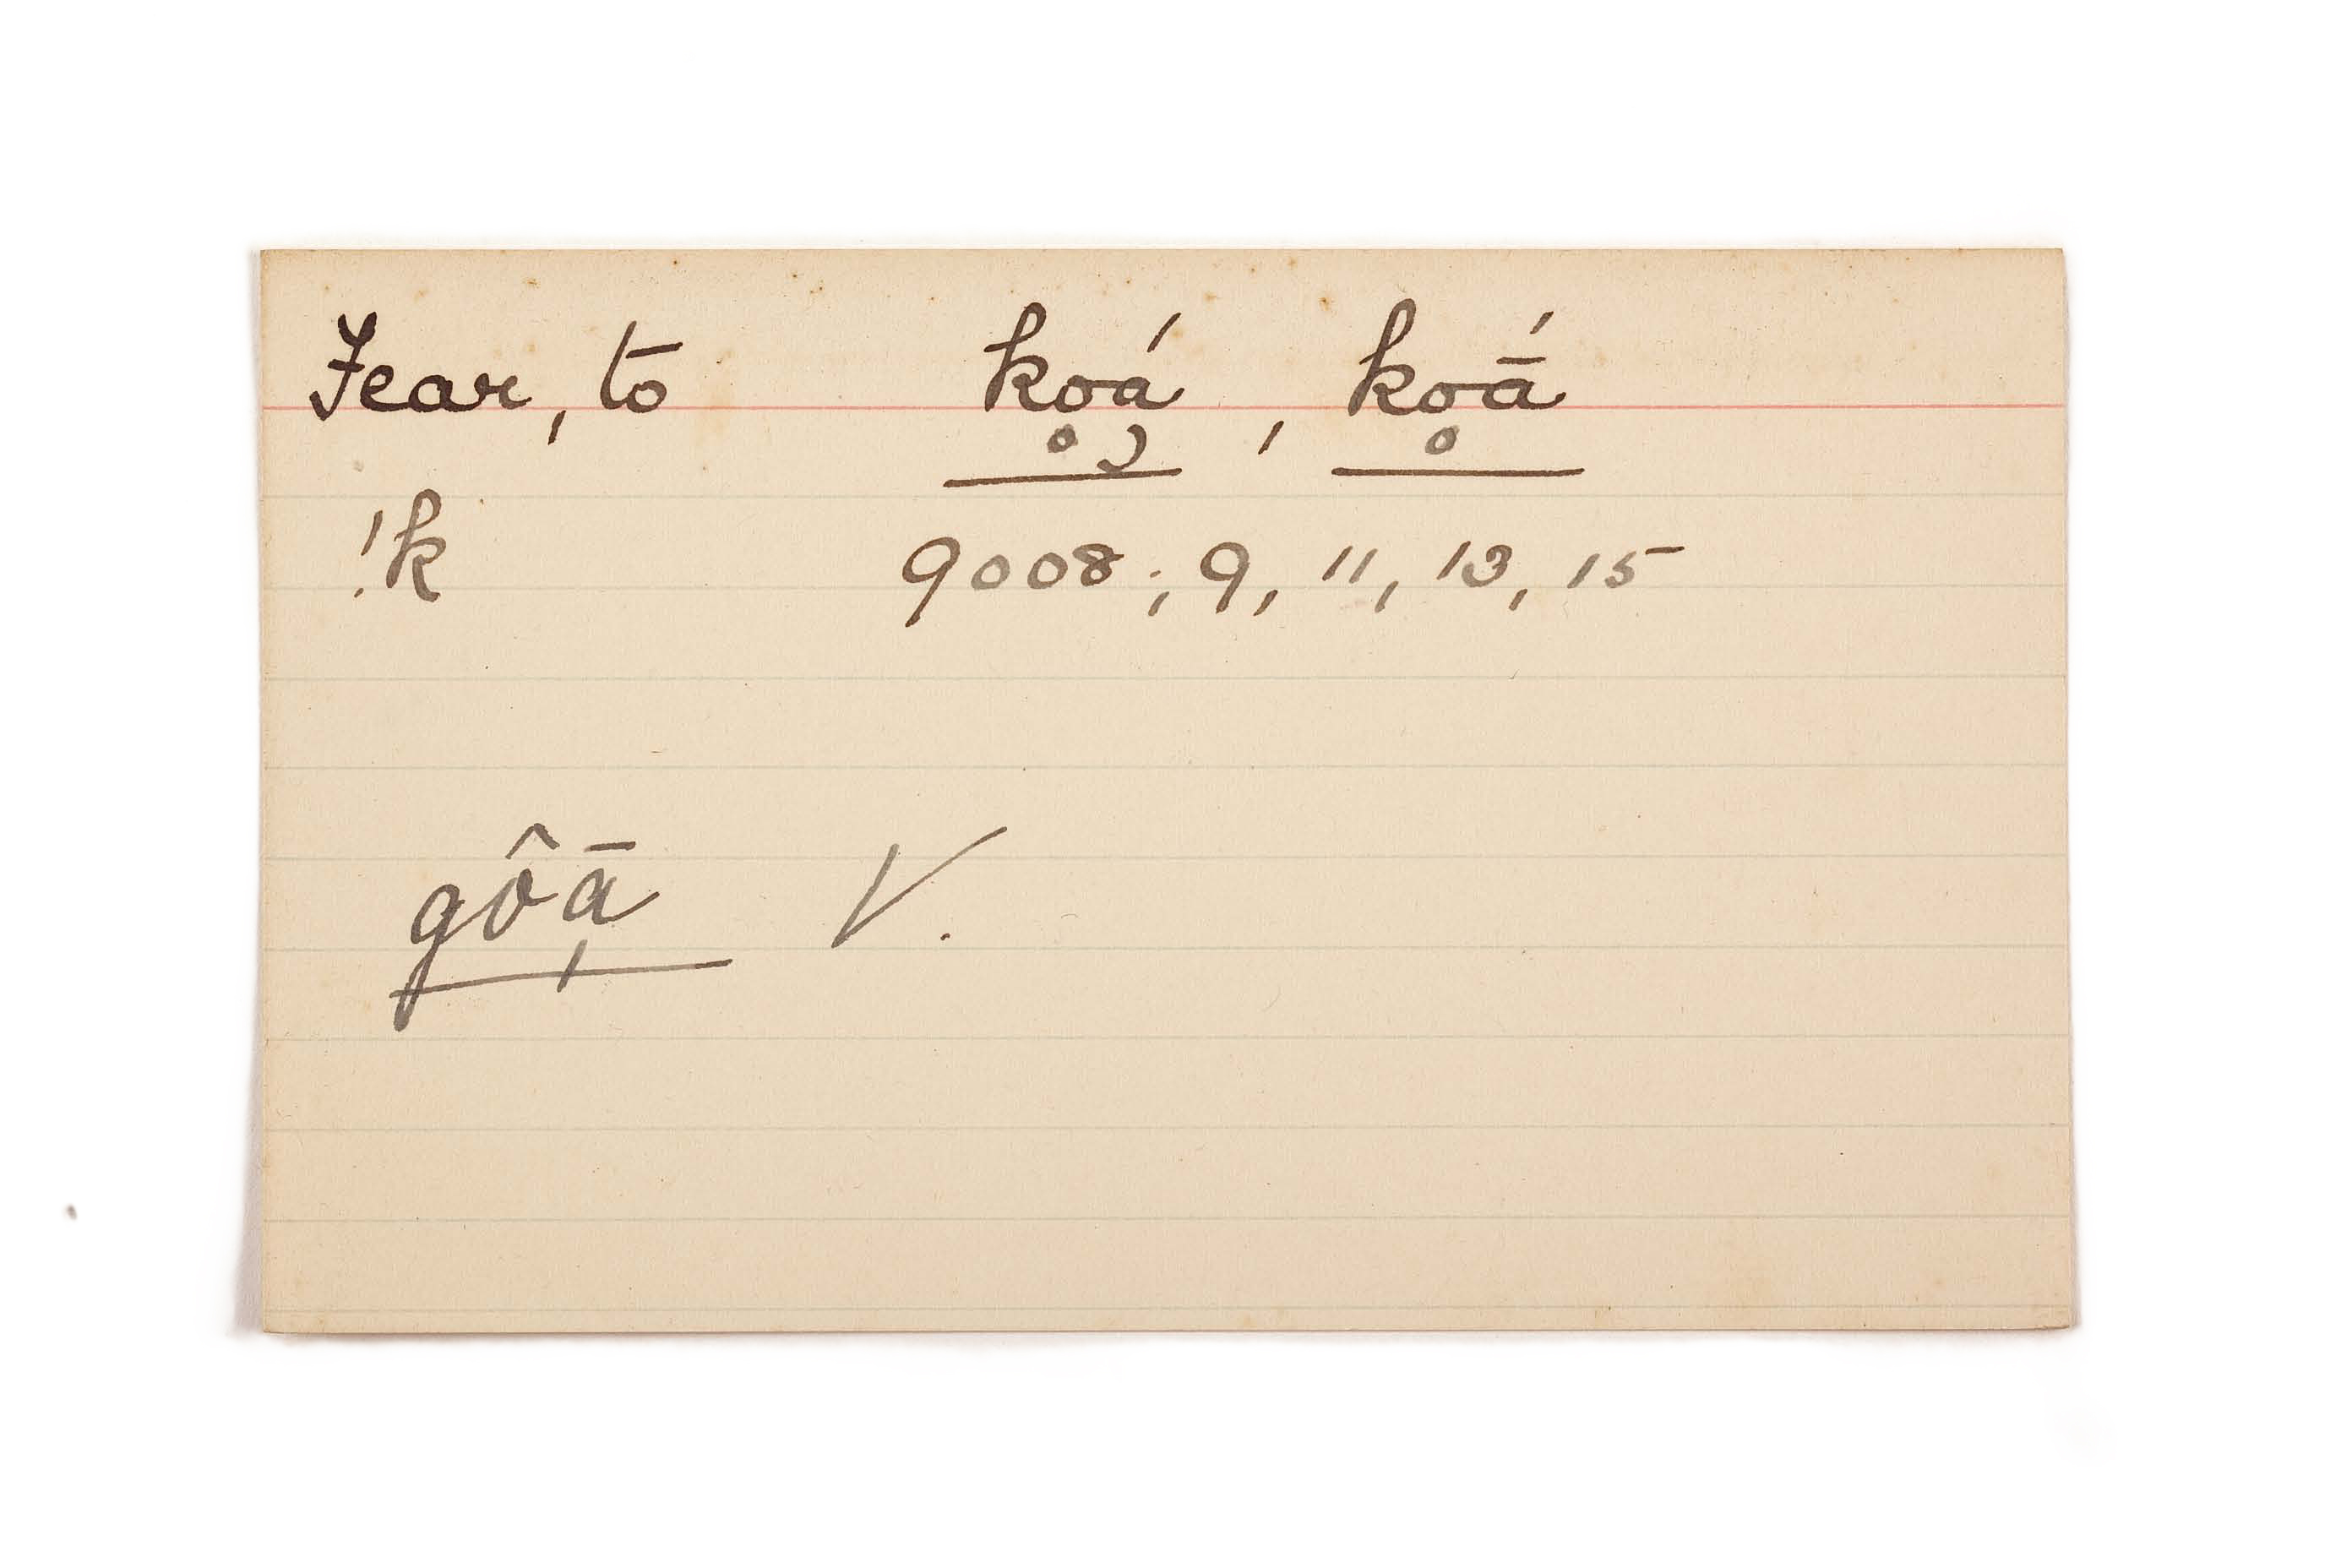 Fear, to ko̥á̜, ko̥ā́
!k 9008; 9, 11, 13, 15
gôā̩ V.